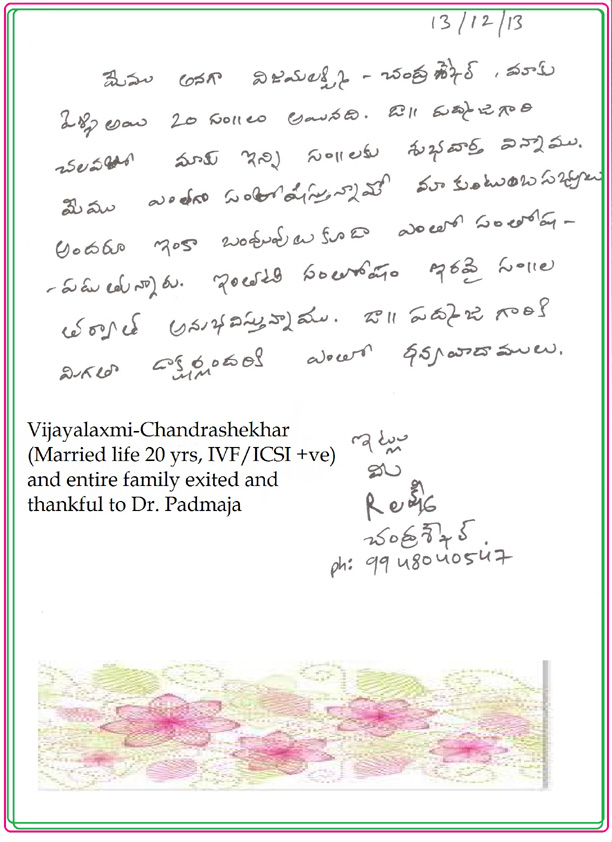 13/12/13
మేము అనగా విజయలక్ష్మి - చంద్రశేఖర్, మాకు
పెళ్ళి అయి 20 సం॥లు అయినది. డా॥ పద్మజ గారి
చలవతో మాకు ఇన్ని సం॥లకు శుభవార్త విన్నాము.
మేము ఎంతగా సంతోషిస్తున్నామో మా కుటుంబ సభ్యులు
అందరూ ఇంకా బంధువులు కూడా ఎంతో సంతోష -
- పడుతున్నారు. ఇంతటి సంతోషం ఇరవై సం॥ల
తర్వాత అనుభవిస్తున్నాము. డా॥ పద్మజ గారికి
మిగతా డాక్టర్లందరికి ఎంతో ధన్యవాదాములు.
Vijayalaxmi-Chandrashekhar
(Married life 20 yrs, IVF/ICSI +ve)
and entire family exited and
thankful to Dr. Padmaja
ఇట్లు
మీ
చంద్రశేఖర్.
ph: 9948040547